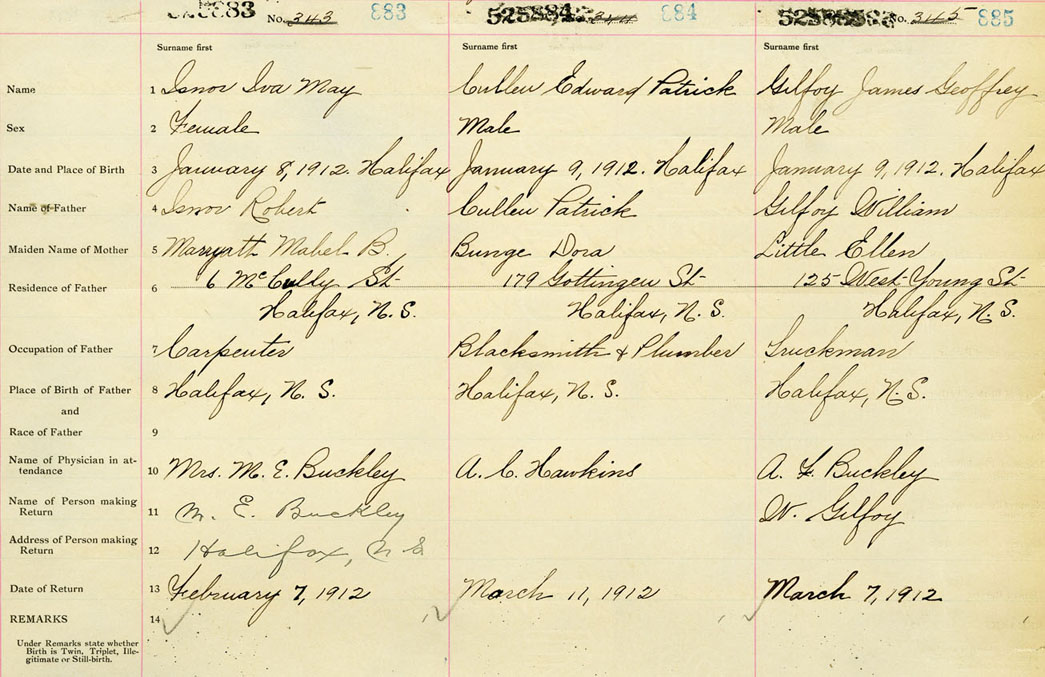 No. 343 883 884 No. 345 885
Surname first Surname first Surname first
Name 1 Isnor Iva May Cullen Edward Patrick Gilfoy James Geoffrey
Sex 2 Female Male Male
Date and Place of Birth 3 January 8, 1912. Halifax January 9, 1912. Halifax January 9, 1912. Halifax
Name of Father 4 Isnor Robert Cullen Patrick Gilfoy William
Maiden Name of Mother 5 Marryatt Mabel B. Bunge Dora Little Ellen
Residence of Father 6 6 McCully St 179 Gottingen St 125 West Young St
Halifax, N.S. Halifax, N.S. Halifax, N.S.
Occupation of Father 7 Carpenter Blacksmith & Plumber Truckman
Place of Birth of Father 8 Halifax, N.S. Halifax, N.S. Halifax, N.S.
and
Race of Father 9
Name of Physician in at-
tendance 10 Mrs. M. E. Buckley A. C. Hawkins A. F. Buckley
Name of Person making
Return 11 M. E. Buckley W. Gilfoy
Address of Person making
Return 12 Halifax, N S
Date of Return 13 February 7, 1912 March 11, 1912 March 7, 1912
REMARKS 14
Under Remarks state whether
Birth is Twin, Triplet, Ille-
gitimate or Still-birth.